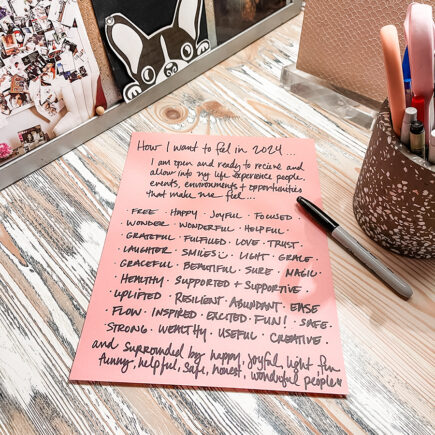 How I want to feel in 2024...
I am open and ready to recieve and
allow into my life experience people,
events, environments + opportunities
that make me feel...
· FREE · HAPPY · JOYFUL · FOCUSED ·
WONDER · WONDERFUL · HELPFUL ·
GRATEFUL · FULFILLED · LOVE · TRUST ·
LAUGHTER · SMILES ☺ · LIGHT · GRACE ·
GRACEFUL · BEAUTIFUL · SURE · MAGIC ·
HEALTHY · SUPPORTED + SUPPORTIVE ·
UPLIFTED · RESILIENT · ABUNDANT · EASE
· FLOW · INSPIRED · EXCITED · FUN! · SAFE ·
STRONG · WEALTHY · USEFUL · CREATIVE ·
and surrounded by happy, joyful, light, fun
funny, helpful, safe, honest, wonderful people